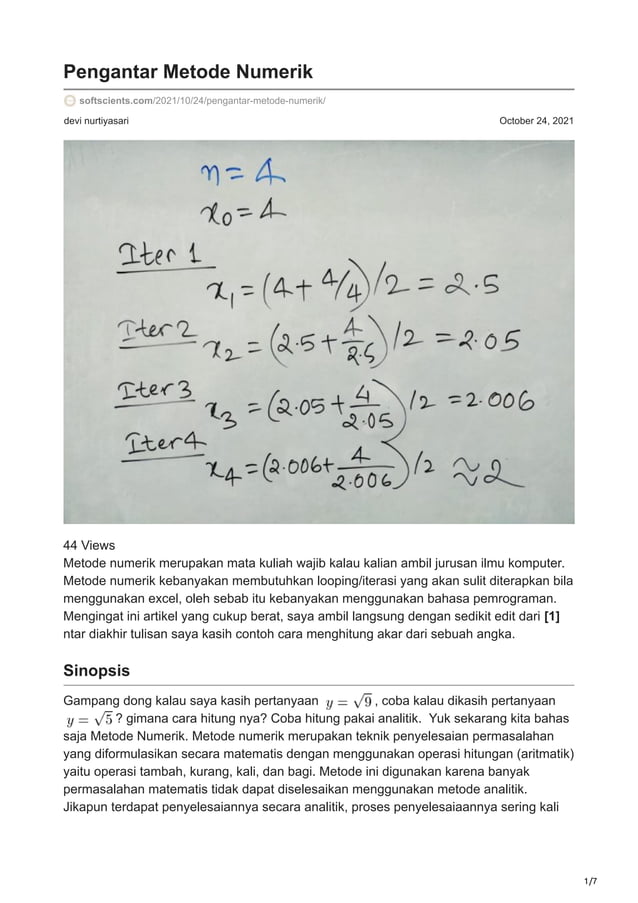 Pengantar Metode Numerik
softscients.com/2021/10/24/pengantar-metode-numerik/
devi nurtiyasari October 24, 2021
n = 4
x₀ = 4
Iter 1
x₁ = (4 + 4/4)/2 = 2.5
Iter 2 x₂ = (2.5 + 4/2.5)/2 = 2.05
Iter 3 x₃ = (2.05 + 4/2.05)/2 = 2.006
Iter 4 x₄ = (2.006 + 4/2.006)/2 ≈ 2
44 Views
Metode numerik merupakan mata kuliah wajib kalau kalian ambil jurusan ilmu komputer.
Metode numerik kebanyakan membutuhkan looping/iterasi yang akan sulit diterapkan bila
menggunakan excel, oleh sebab itu kebanyakan menggunakan bahasa pemrograman.
Mengingat ini artikel yang cukup berat, saya ambil langsung dengan sedikit edit dari [1]
ntar diakhir tulisan saya kasih contoh cara menghitung akar dari sebuah angka.
Sinopsis
Gampang dong kalau saya kasih pertanyaan y = √9 , coba kalau dikasih pertanyaan
y = √5 ? gimana cara hitung nya? Coba hitung pakai analitik. Yuk sekarang kita bahas
saja Metode Numerik. Metode numerik merupakan teknik penyelesaian permasalahan
yang diformulasikan secara matematis dengan menggunakan operasi hitungan (aritmatik)
yaitu operasi tambah, kurang, kali, dan bagi. Metode ini digunakan karena banyak
permasalahan matematis tidak dapat diselesaikan menggunakan metode analitik.
Jikapun terdapat penyelesaiannya secara analitik, proses penyelesaiaannya sering kali
1/7